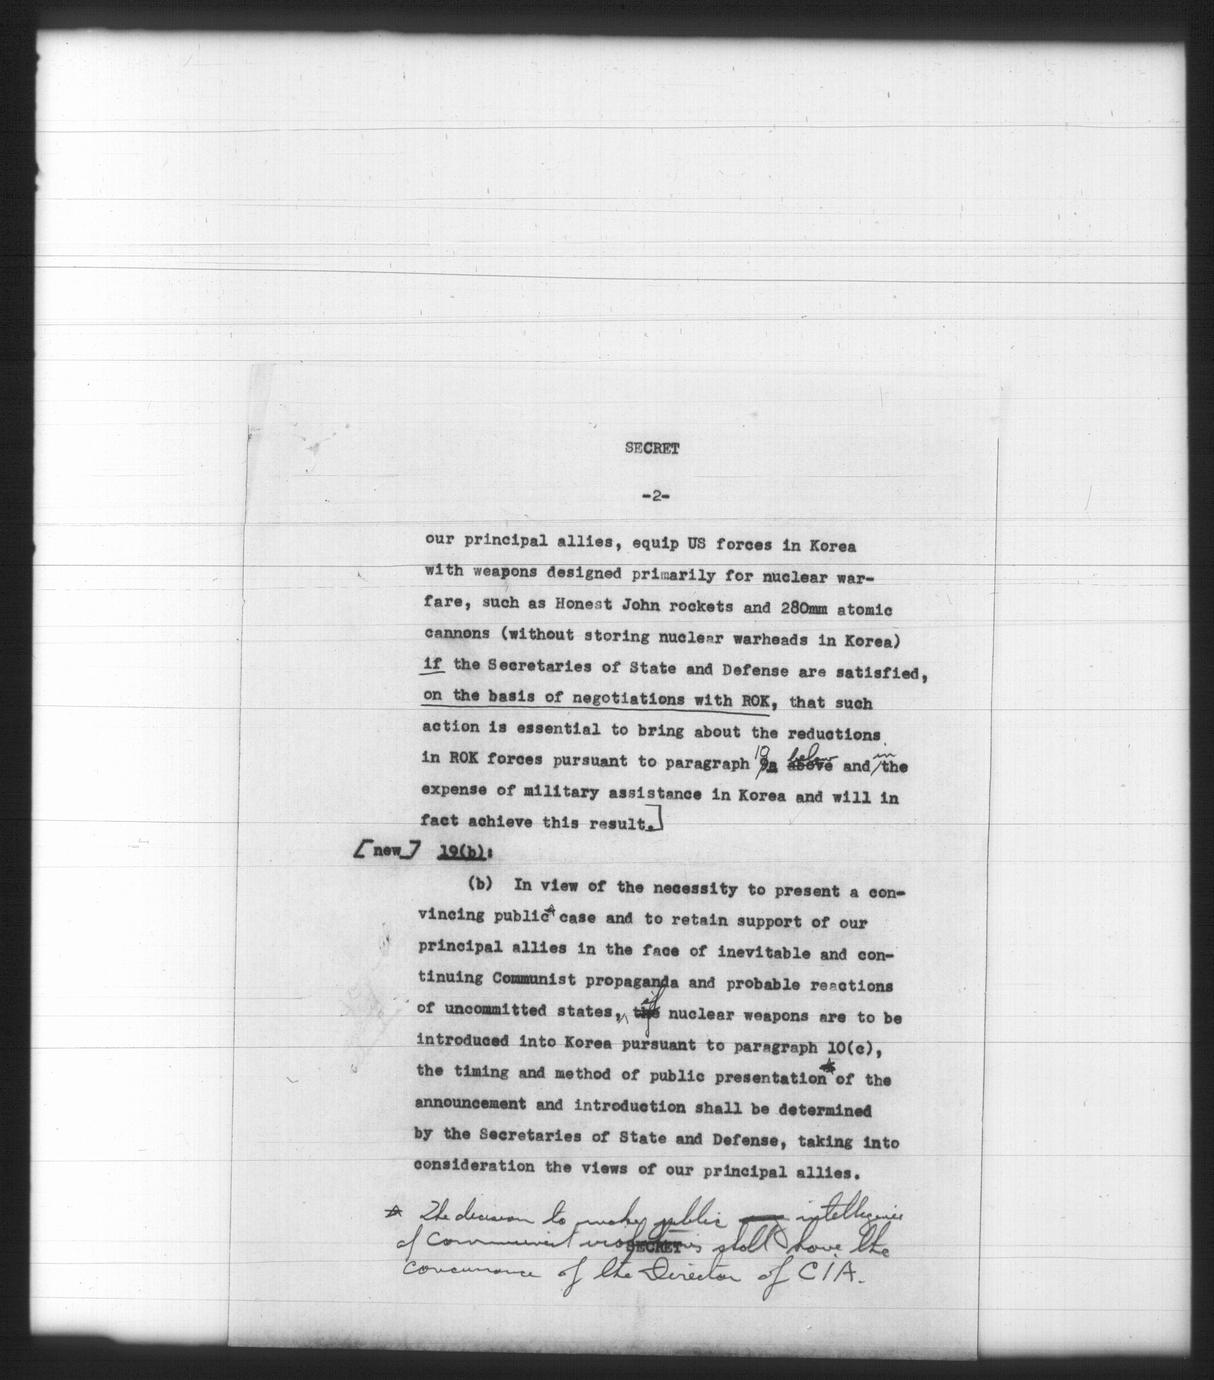 SECRET
-2-
our principal allies, equip US forces in Korea
with weapons designed primarily for nuclear war-
fare, such as Honest John rockets and 280mm atomic
cannons (without storing nuclear warheads in Korea)
if the Secretaries of State and Defense are satisfied,
on the basis of negotiations with ROK, that such
action is essential to bring about the reductions
in ROK forces pursuant to paragraph 9a above below and in the
expense of military assistance in Korea and will in
fact achieve this result.]
[new] 19(b):
(b) In view of the necessity to present a con-
vincing public case and to retain support of our
principal allies in the face of inevitable and con-
tinuing Communist propaganda and probable reactions
of uncommitted states, the if nuclear weapons are to be
introduced into Korea pursuant to paragraph 10(c),
the timing and method of public presentation* of the
announcement and introduction shall be determined
by the Secretaries of State and Defense, taking into
consideration the views of our principal allies.
* The decision to make public intelligence
of Communist violations shall have the
SECRET
concurrence of the Director of CIA.